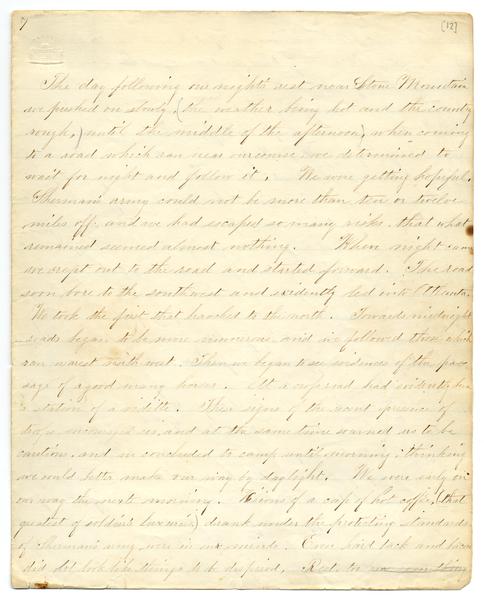 7
[12]
The day following our night's rest near Stone Mountain
we pushed on slowly, (the weather being hot and the country
rough,) until the middle of the afternoon, when coming
to a road which ran near our course we determined to
wait for night and follow it. We were getting hopeful.
Sherman's army could not be more than ten or twelve
miles off, and we had escaped so many risks that what
remained seemed almost nothing. When night came
we crept out to the road and started forward. The road
soon bore to the southwest and evidently led into Atlanta.
We took the first that branched to the north. Towards midnight
roads began to be more numerous and we followed those which
ran nearest north west. Then we began to see evidences of the pas-
sage of a good many horses. At a crossroad had evidently been
a station of a vidette. These signs of the recent presence of
troops encouraged us, and at the same time warned us to be
cautious, and we concluded to camp until morning, thinking
we could better make our way by daylight. We were early on
our way the next morning. Visions of a cup of hot coffee, (that
greatest of soldier's luxuries,) drank under the protecting standards
of Sherman's army were in our minds. Even hard tack and bacon
did not look like things to be despised. Rest, to